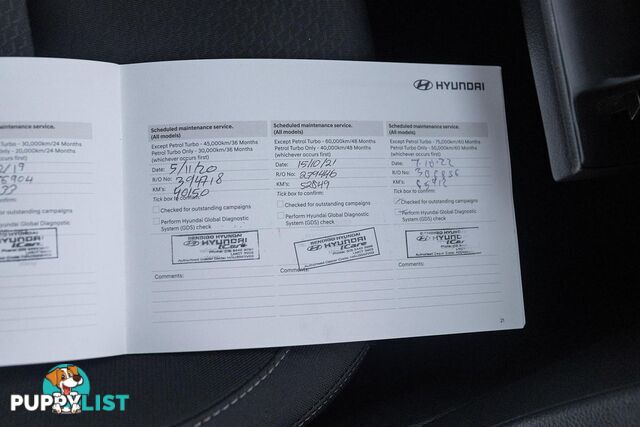 HYUNDAI
maintenance service.
30,000km/24 Months
20,000km/24 Months
first)
Scheduled maintenance service.
(All models)
Except Petrol Turbo - 45,000km/36 Months
Petrol Turbo Only - 30,000km/36 Months
(whichever occurs first)
Date: 5/11/20
R/O No: 394718
KM's: 40150
Tick box to confirm:
Checked for outstanding campaigns
Perform Hyundai Global Diagnostic
System (GDS) check
BENDIGO HYUNDAI
HYUNDAI
iCare
Comments:
Scheduled maintenance service.
(All models)
Except Petrol Turbo - 60,000km/48 Months
Petrol Turbo Only - 40,000km/48 Months
(whichever occurs first)
Date: 15/10/21
R/O No: 279446
KM's: 52849
Tick box to confirm:
Checked for outstanding campaigns
Perform Hyundai Global Diagnostic
System (GDS) check
BENDIGO HYUNDAI
HYUNDAI
iCare
Comments:
Scheduled maintenance service.
(All models)
Except Petrol Turbo - 75,000km/60 Months
Petrol Turbo Only - 50,000km/60 Months
(whichever occurs first)
Date: 7.10.22
R/O No:
KM's:
Tick box to confirm:
Checked for outstanding campaigns
Perform Hyundai Global Diagnostic
System (GDS) check
BENDIGO HYUNDAI
HYUNDAI
iCare
Comments:
campaigns
Diagnostic
21
PUPPYLIST